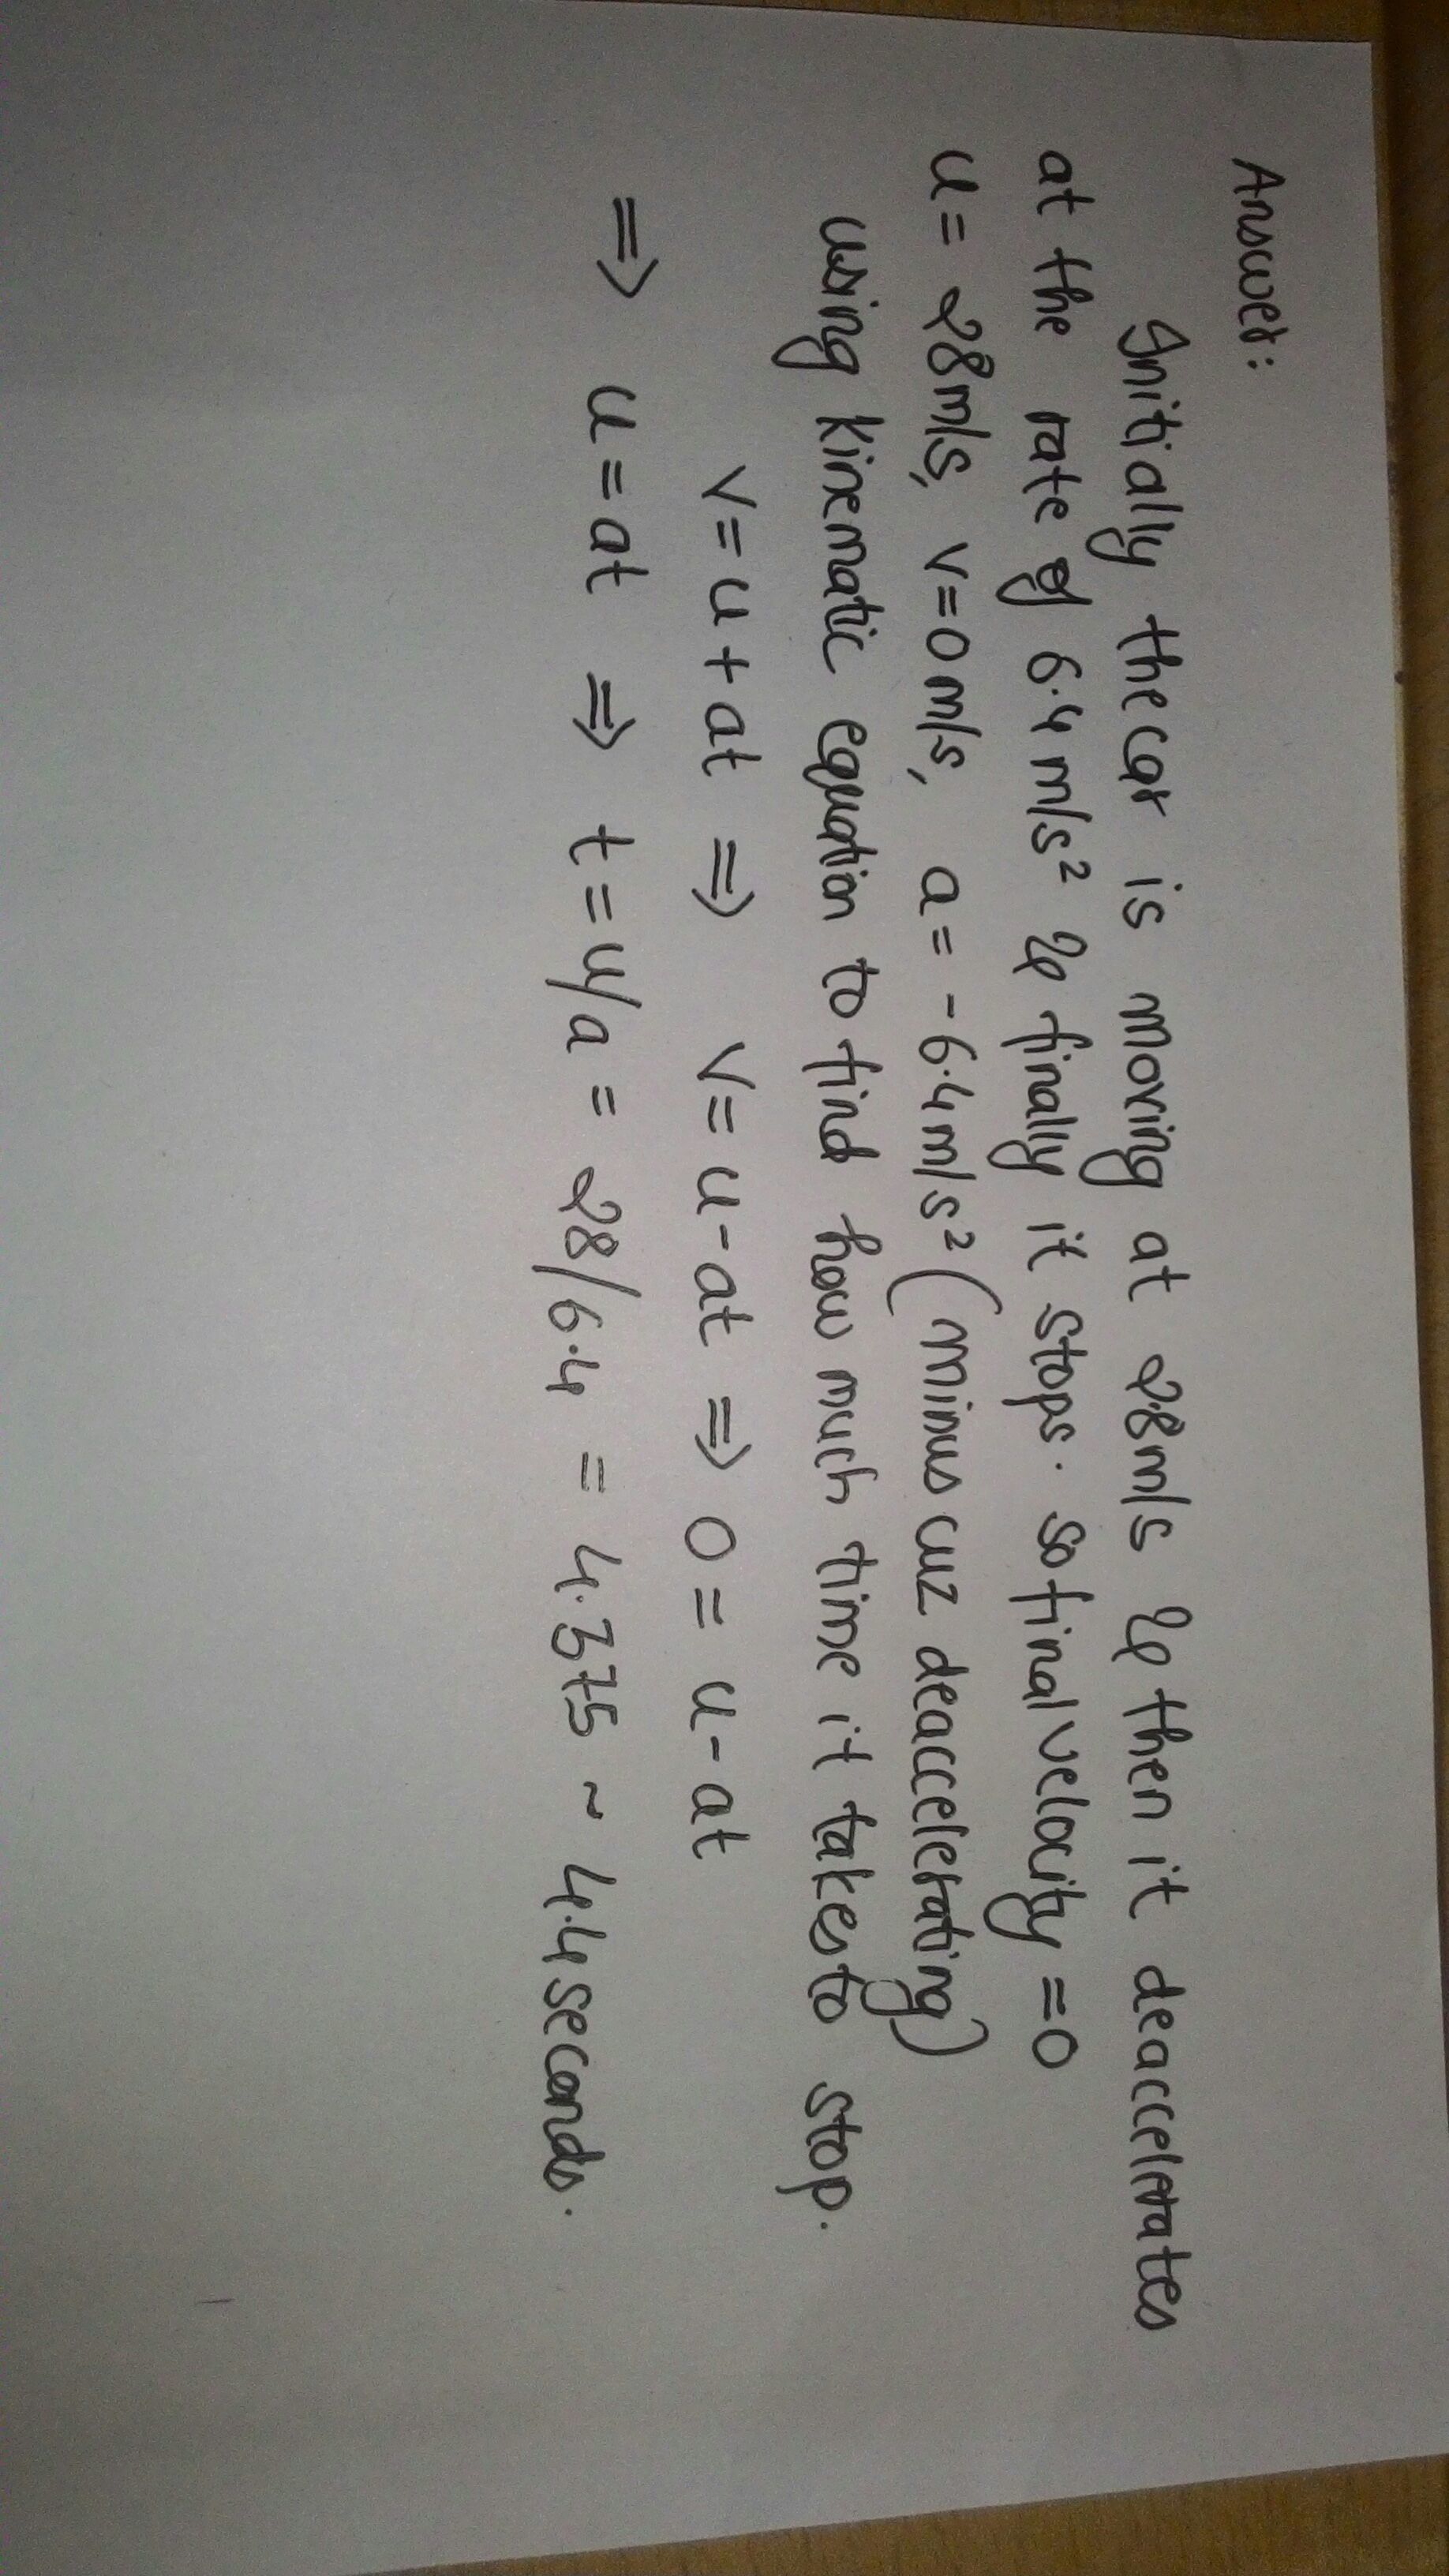 Answer:
Initially the car is moving at 28m/s & then it deaccelerates
at the rate of 6.4 m/s² & finally it stops. so final velocity = 0
u = 28m/s, v = 0 m/s, a = -6.4 m/s² (minus cuz deaccelerating)
using kinematic equation to find how much time it takes to stop.
v = u + at ⇒ v = u - at ⇒ 0 = u - at
⇒ u = at ⇒ t = u/a = 28/6.4 = 4.375 ~ 4.4 seconds.